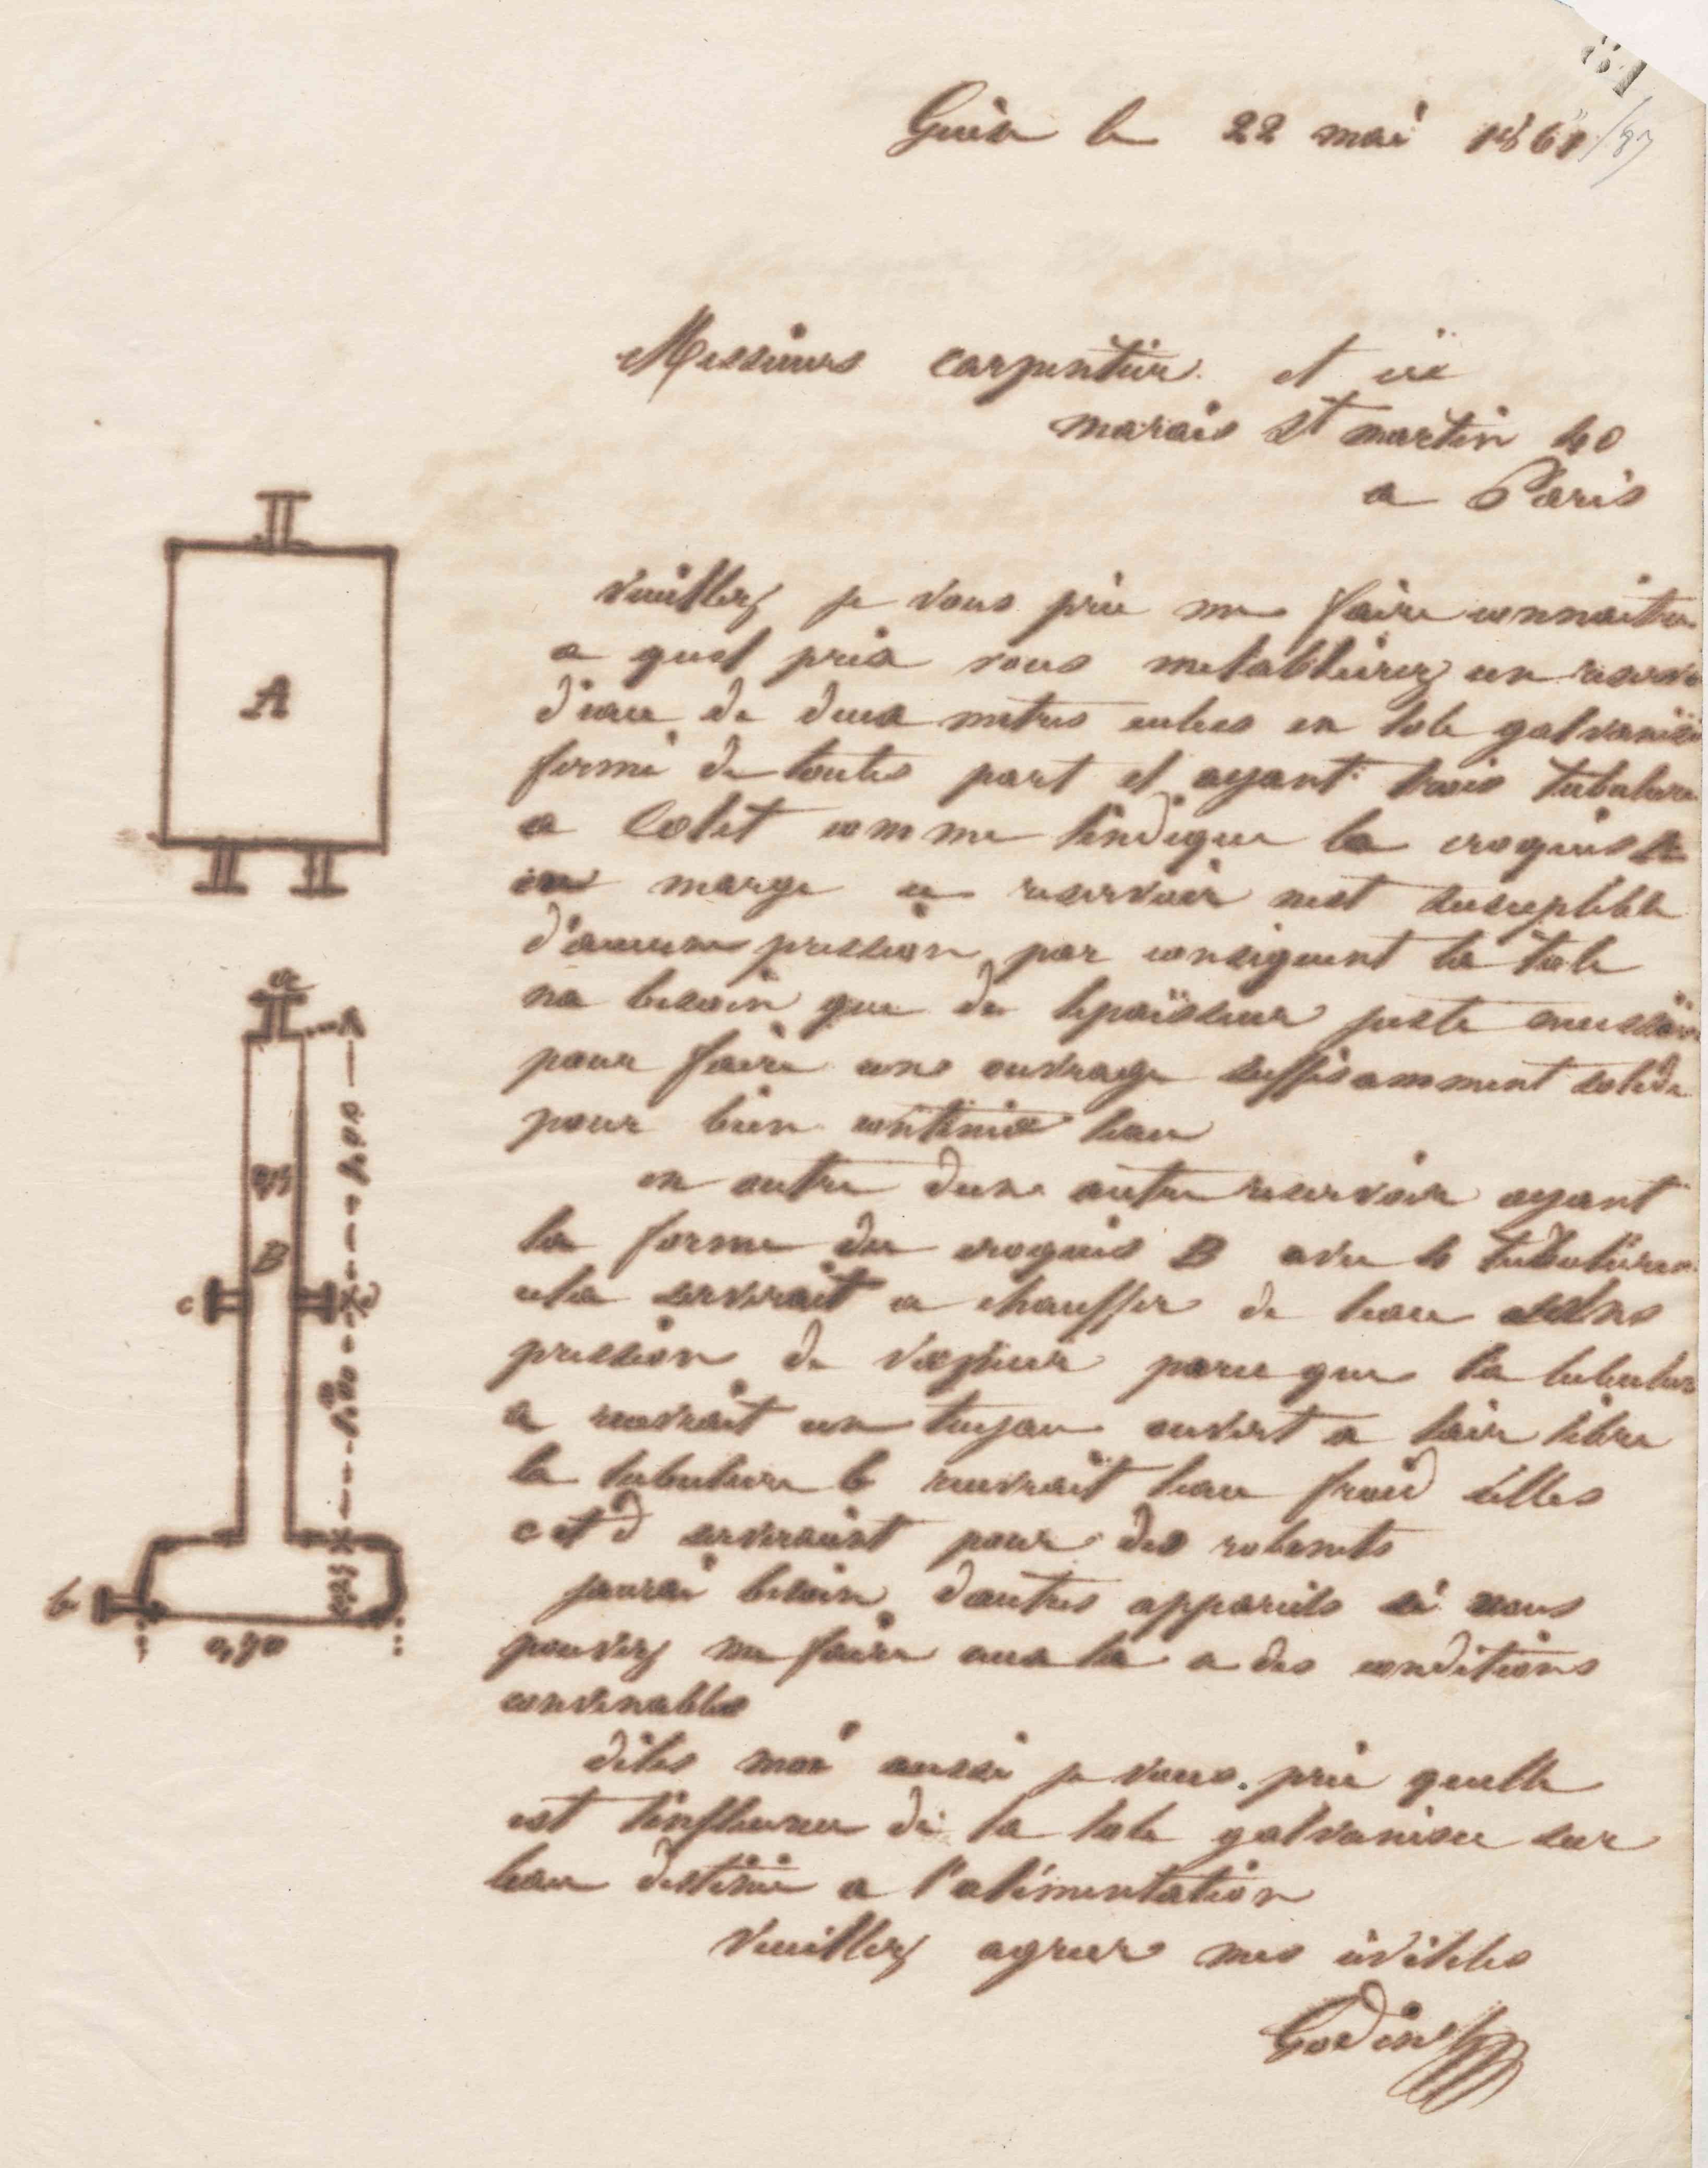 81
/87
Guise le 22 mai 1861
Messieurs carpentier et cie
marais St martin 40
a Paris
Veuillez je vous prie me faire connaitre
a quel prix vous metablirez un reservo
d'eau de deux metres cubes en tole galvanisé
fermé de toutes part et ayant trois tubulure
a Colet comme lindique le croquis
en marge ce reservoir nest suceptible
d'aucune pression par consequent la tole
na besoin que de lepaisseur juste
pour faire une ouvrage suffisamment solide
pour bien contenir leau
en outre dun autre reservoir ayant
la forme du croquis B avec 4 tubulures
cela servirait a chauffer de leau sans
pression de vapeur parceque la tubulur
a recevrait un tuyau ouvert a lair libre
la tubulure b recevrait leau froid celles
c et d serviraient pour des robinets
jaurai besoin dautres appareils si vous
pouvez me faire ceux la a des conditions
convenables
dites moi aussi je vous prie quelle
est linfluence de la tole galvanisee sur
leau destinee a l'alimentation
Veuillez agreer mes civilites
Godin
A
a
B
c
b
0,70